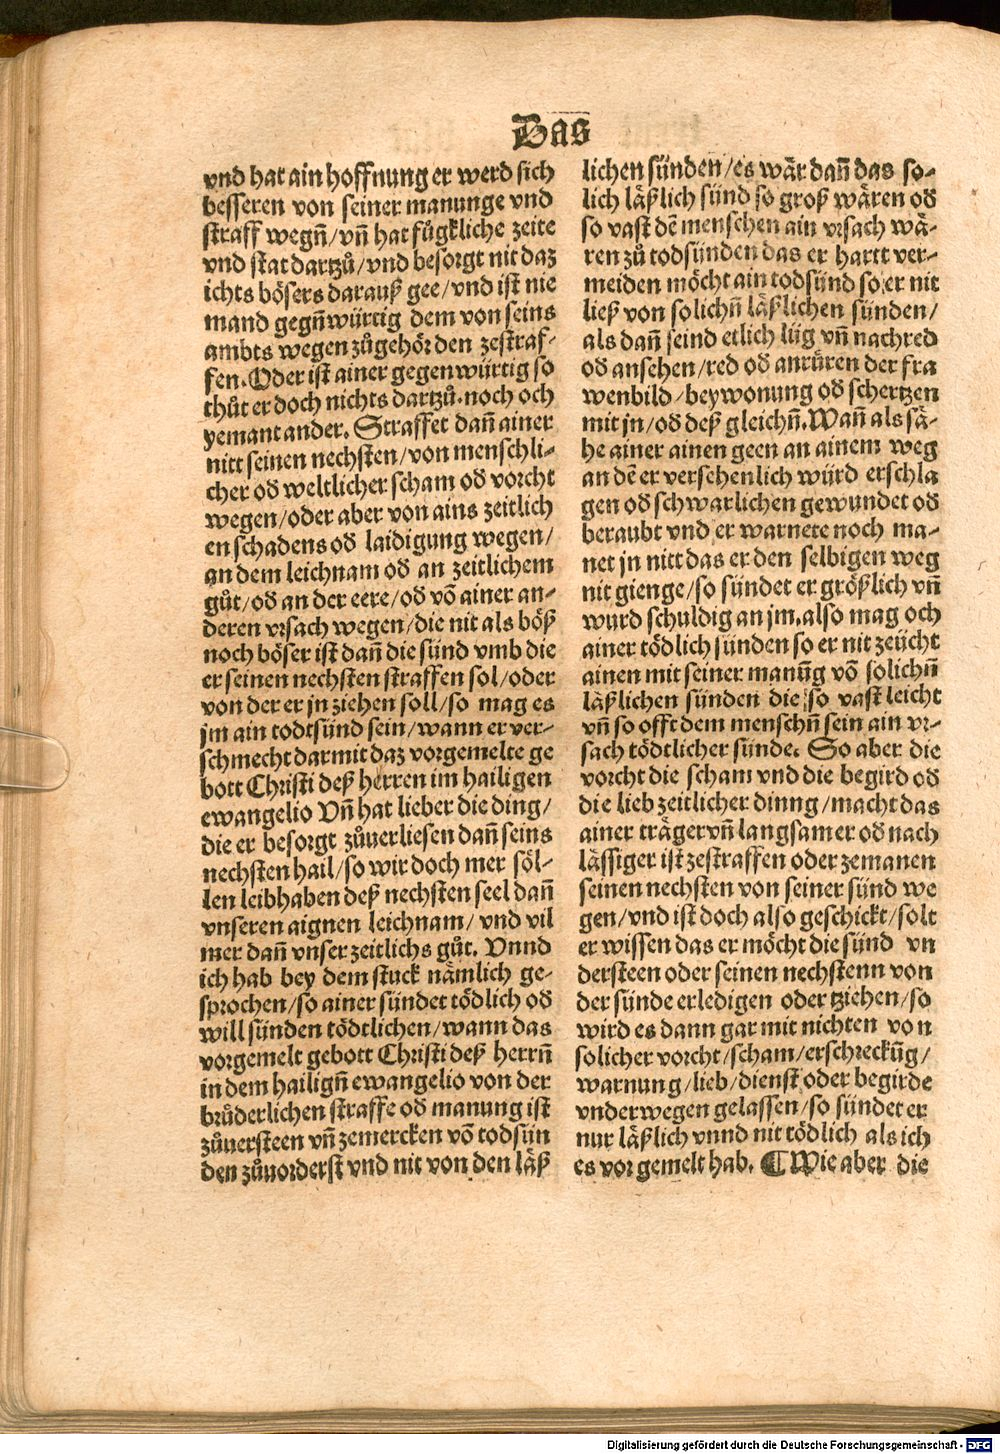 Das
vnd hat ain hoffnung er werd sich
besseren von seiner manunge vnd
straff wegn̄/vn̄ hat fügkliche zeite
vnd stat dartzů/vnd besorgt nit daz
ichts bösers darauß gee/vnd ist nie
mand gegn̄würtig dem von seins
ambts wegen zůgehör den zestraf-
fen. Oder ist ainer gegenwürtig so
thůt er doch nichts dartzů. noch och
yemant ander. Straffet dan̄ ainer
nitt seinen nechsten/von menschli-
cher od weltlicher scham od vorcht
wegen/oder aber von ains zeitlich
en schadens od laidigung wegen/
an dem leichnam od an zeitlichem
gůt/od an der eere/od vō ainer an-
deren vrsach wegen/die nit als böß
noch böser ist dan̄ die sünd vmb die
er seinen nechsten straffen sol/oder
von der er jn ziehen soll/so mag es
jm ain todtsünd sein/wann er ver-
schmecht darmit daz vorgemelte ge
bott Christi deß herren im hailigen
ewangelio Vn̄ hat lieber die ding/
die er besorgt zůuerliesen dan̄ seins
nechsten hail/so wir doch mer söl-
len leibhaben deß nechsten seel dan̄
vnseren aignen leichnam/vnd vil
mer dan̄ vnser zeitlichs gůt. Vnnd
ich hab bey dem stuck nämlich ge-
sprochen/so ainer sündet tödlich od
will sünden tödtlichen/wann das
vorgemelt gebott Christi deß herrn̄
in dem hailign̄ ewangelio von der
brůderlichen straffe od manung ist
zůuersteen vn̄ zemercken vō todsün
den zůuorderst vnd nit von den läß
lichen sünden/es wär dan̄ das so-
lich läßlich sünd so groß wären od
so vast dē menschen ain vrsach wä-
ren zů todsünden das er hartt ver-
meiden möcht ain todsünd so er nit
ließ von solichn̄ läßlichen sünden/
als dan̄ seind etlich lüg vn̄ nachred
od ansehen/red od anrüren der fra
wenbild/beywonung od schertzen
mit jn/od deß gleichn̄. Wan̄ als sä-
he ainer ainen geen an ainem weg
an dē er versehenlich würd erschla
gen od schwarlichen gewundet od
beraubt vnd er warnete noch ma-
net jn nitt das er den selbigen weg
nit gienge/so sündet er größlich vn̄
wurd schuldig an jm. also mag och
ainer tödlich sünden so er nit zeücht
ainen mit seiner manūg vō solichn̄
läßlichen sünden die so vast leicht
vn̄ so offt dem menschn̄ sein ain vr-
sach tödtlicher sünde. So aber die
vorcht die scham vnd die begird od
die lieb zeitlicher dinng/macht das
ainer träger vn̄ langsamer od nach
lässiger ist zestraffen oder zemanen
seinen nechsten von seiner sünd we
gen/vnd ist doch also geschickt/solt
er wissen das er möcht die sünd vn
dersteen oder seinen nechstenn von
der sünde erledigen oder tziehen/so
wird es dann gar mit nichten von
solicher vorcht/scham/erschreckūg/
warnung/lieb/dienst oder begirde
vnderwegen gelassen/so sündet er
nur läßlich vnnd nit tödlich als ich
es vor gemelt hab. ¶ Wie aber die
Digitalisierung gefördert durch die Deutsche Forschungsgemeinschaft - DFG